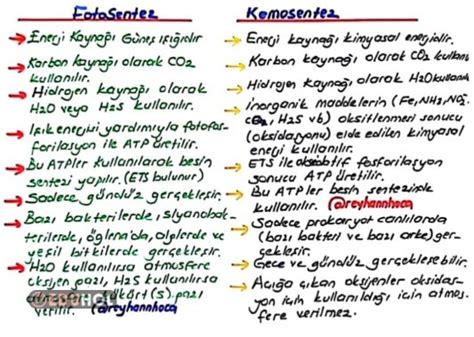 Fotosentez
→ Enerji Kaynağı Güneş ışığıdır
→ Karbon Kaynağı olarak CO2
kullanılır.
→ Hidrojen kaynağı olarak
H2O veya H2S kullanılır.
→ Işık enerjisi yardımıyla fotofos-
forilasyon ile ATP üretilir.
→ Bu ATPler kullanılarak besin
sentezi yapılır. (ETS bulunur)
→ Sadece gündüz gerçekleşir.
→ Bazı bakterilerde, siyanobak-
terilerde, öglena'da, alglerde ve
yeşil bitkilerde gerçekleşir.
→ H2O kullanılırsa atmosfere
oksijen gazı, H2S kullanılırsa
kükürt(S) gazı
verilir. @reyhannhoca
Kemosentez
→ Enerji kaynağı kimyasal enerjidir.
→ Karbon kaynağı olarak CO2 kullanılır.
→ Hidrojen kaynağı olarak H2O kullanılır
→ İnorganik maddelerin (Fe, NH3, NO2,
H2S vb) oksitlenmesi sonucu
(oksidasyonu) elde edilen kimyasal
enerji kullanılır.
→ ETS ile oksidatif fosforilasyon
sonucu ATP üretilir.
→ Bu ATPler besin sentezinde
kullanılır. @reyhannhoca
→ Sadece prokaryot canlılarda
(bazı bakteri ve bazı arke) ger-
çekleşir.
→ Gece ve gündüz gerçekleşebilir.
→ Açığa çıkan oksijenler oksidas-
yon için kullanıldığı için atmos-
fere verilmez.